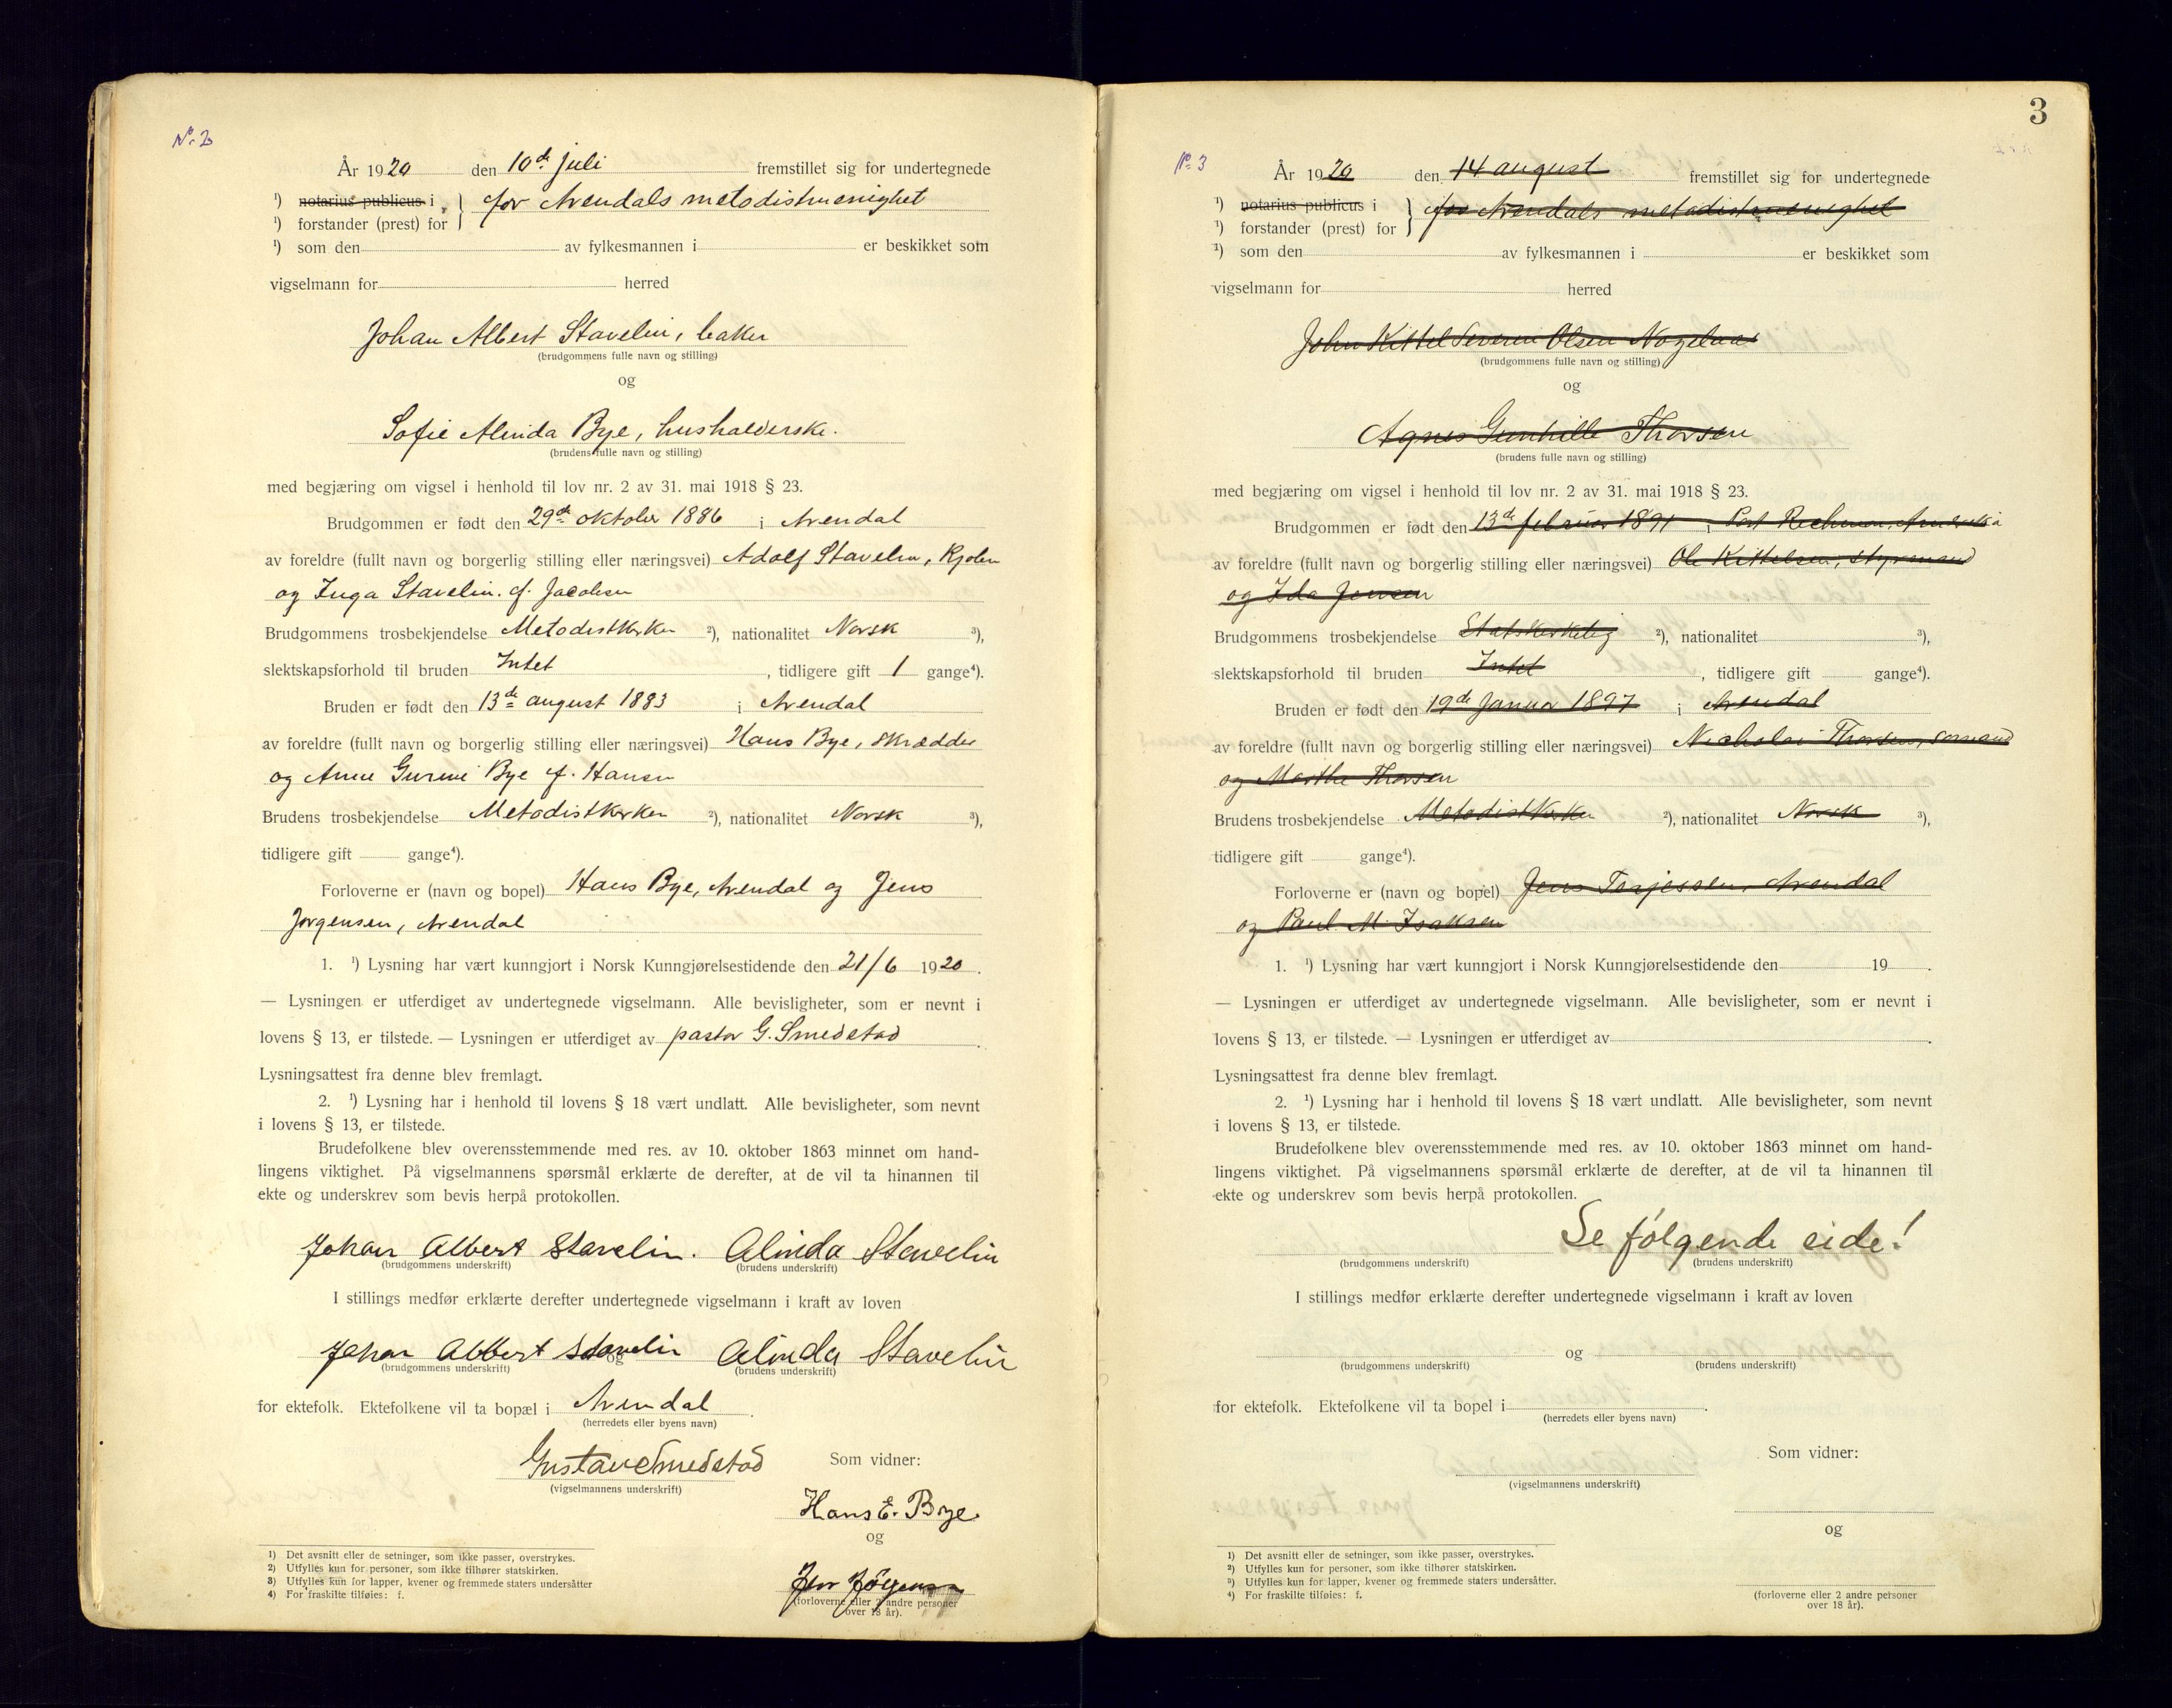 No. 2
År 1920 den 10de juli fremstillet sig for undertegnede
¹) notarius publicus i } for Arendals metodistmenighet
¹) forstander (prest) for
¹) som den av fylkesmannen i er beskikket som
vigselmann for herred
Johan Albert Stavelin, baker
(brudgommens fulle navn og stilling)
og
Sofie Alinda Bye, husholderske.
(brudens fulle navn og stilling)
med begjæring om vigsel i henhold til lov nr. 2 av 31. mai 1918 § 23.
Brudgommen er født den 29de oktober 1886 i Arendal
av foreldre (fullt navn og borgerlig stilling eller næringsvei) Adolf Stavelin,
og Inga Stavelin. f. Jacobsen
Brudgommens trosbekjendelse Metodistkirken ²), nationalitet Norsk ³),
slektskapsforhold til bruden Intet, tidligere gift 1 gange⁴).
Bruden er født den 13de august 1883 i Arendal
av foreldre (fullt navn og borgerlig stilling eller næringsvei) Hans Bye, skrædder
og Anne Gurine Bye f. Hansen
Brudens trosbekjendelse Metodistkirken ²), nationalitet Norsk ³),
tidligere gift gange⁴).
Forloverne er (navn og bopel) Hans Bye, Arendal og Jens
Jørgensen, Arendal
1. ¹) Lysning har vært kunngjort i Norsk Kunngjørelsestidende den 21/6 1920.
— Lysningen er utferdiget av undertegnede vigselmann. Alle bevisligheter, som er nevnt i
lovens § 13, er tilstede. — Lysningen er utferdiget av pastor G. Smedstad.
Lysningsattest fra denne blev fremlagt.
2. ¹) Lysning har i henhold til lovens § 18 vært undlatt. Alle bevisligheter, som nevnt
i lovens § 13, er tilstede.
Brudefolkene blev overensstemmende med res. av 10. oktober 1863 minnet om hand-
lingens viktighet. På vigselmannens spørsmål erklærte de derefter, at de vil ta hinannen til
ekte og underskrev som bevis herpå protokollen.
Johan Albert Stavelin. Alinda Stavelin
(brudgommens underskrift) (brudens underskrift)
I stillings medfør erklærte derefter undertegnede vigselmann i kraft av loven
Johan Albert Stavelin og Alinda Stavelin
(brudgommens underskrift) (brudens underskrift)
for ektefolk. Ektefolkene vil ta bopæl i Arendal.
(herredets eller byens navn)
Gustav Smedstad
(vigselmannens underskrift)
Som vidner:
Hans E. Bye.
og
Jens Jörgensen
(forloverne eller 2 andre personer
over 18 år).
1) Det avsnitt eller de setninger, som ikke passer, overstrykes.
2) Utfylles kun for personer, som ikke tilhører statskirken.
3) Utfylles kun for lapper, kvener og fremmede staters undersåtter
4) For fraskilte tilføies: f.
3
No. 3
År 1920 den 14 august fremstillet sig for undertegnede
¹) notarius publicus i } for Arendals metodistmenighet
¹) forstander (prest) for
¹) som den av fylkesmannen i er beskikket som
vigselmann for herred
John Kittel Severin Olsen
(brudgommens fulle navn og stilling)
og
Agnes Gunhille Thorsen
(brudens fulle navn og stilling)
med begjæring om vigsel i henhold til lov nr. 2 av 31. mai 1918 § 23.
Brudgommen er født den 13de februar 1891 i Port
av foreldre (fullt navn og borgerlig stilling eller næringsvei) Ole Kittelsen, styrmand
og Ida Jensen
Brudgommens trosbekjendelse Statskirkelig ²), nationalitet ³),
slektskapsforhold til bruden Intet, tidligere gift gange⁴).
Bruden er født den 19de Januar 1897 i Arendal
av foreldre (fullt navn og borgerlig stilling eller næringsvei) Nicholai Thorsen, sømand
og Marthe Thorsen
Brudens trosbekjendelse Metodistkirken ²), nationalitet Norsk ³),
tidligere gift gange⁴).
Forloverne er (navn og bopel) Jens Terjessen, Arendal
og Paul M. Isaksen
1. ¹) Lysning har vært kunngjort i Norsk Kunngjørelsestidende den 19.
— Lysningen er utferdiget av undertegnede vigselmann. Alle bevisligheter, som er nevnt i
lovens § 13, er tilstede. — Lysningen er utferdiget av.
Lysningsattest fra denne blev fremlagt.
2. ¹) Lysning har i henhold til lovens § 18 vært undlatt. Alle bevisligheter, som nevnt
i lovens § 13, er tilstede.
Brudefolkene blev overensstemmende med res. av 10. oktober 1863 minnet om hand-
lingens viktighet. På vigselmannens spørsmål erklærte de derefter, at de vil ta hinannen til
ekte og underskrev som bevis herpå protokollen.
Se følgende side!
(brudgommens underskrift) (brudens underskrift)
I stillings medfør erklærte derefter undertegnede vigselmann i kraft av loven
og
(brudgommens underskrift) (brudens underskrift)
for ektefolk. Ektefolkene vil ta bopel i.
(herredets eller byens navn)
Som vidner:
(vigselmannens underskrift)
og
(forloverne eller 2 andre personer
over 18 år).
1) Det avsnitt eller de setninger, som ikke passer, overstrykes.
2) Utfylles kun for personer, som ikke tilhører statskirken.
3) Utfylles kun for lapper, kvener og fremmede staters undersåtter.
4) For fraskilte tilføies: f.